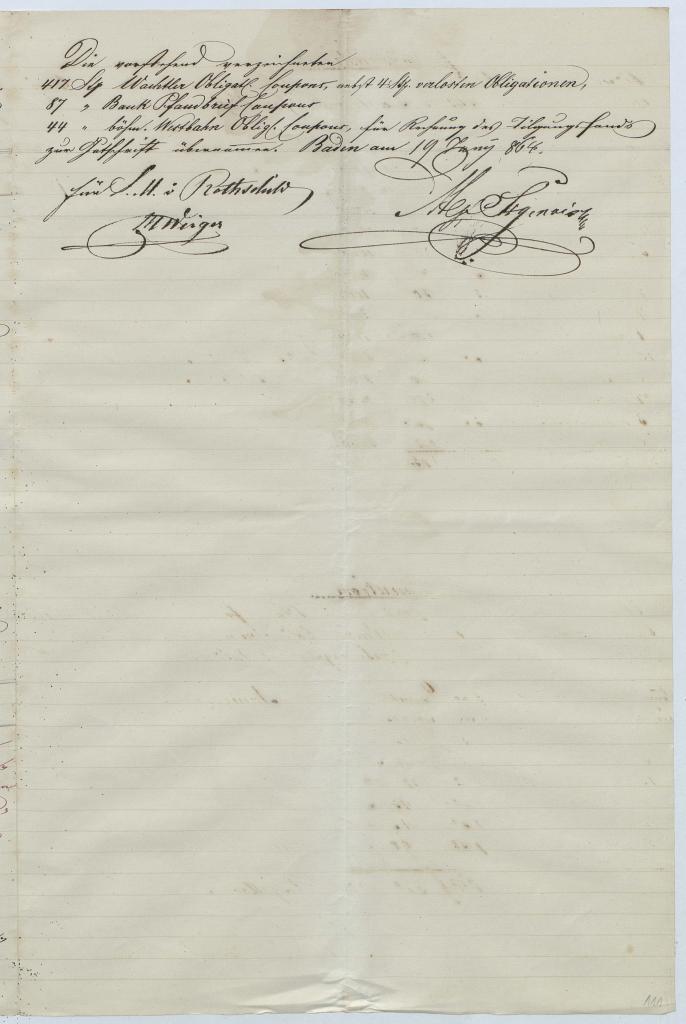 Die vorstehend verzeichneten
417 Stp Wachtler Obligat. Coupons, nebst 4 Stp. verlosten Obligationen,
87 " Bank Pfandbrief Coupons
44 " böhm. Westbahn Oblig. Coupons, für Rechnung des Tilgungsfonds
zur Gutschrift übernommen. Baden am 19 Juny 864.
für S. M. v Rothschild